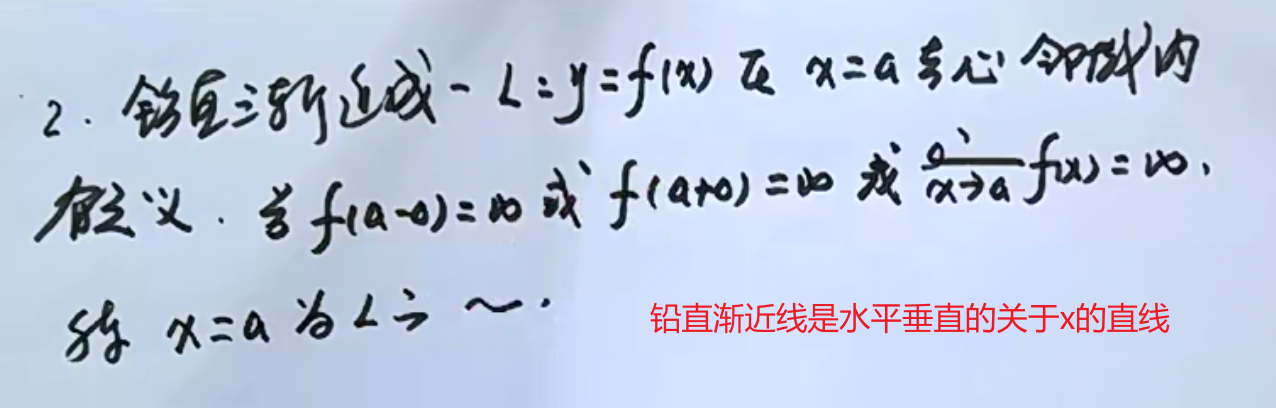 2. 铅直渐近线 - L: y=f(x) 在 x=a 去心邻域内
有定义. 若 f(a-0)=∞ 或 f(a+0)=∞ 或 lim x→a f(x)=∞,
称 x=a 为 L 之 ~.
铅直渐近线是水平垂直的关于x的直线